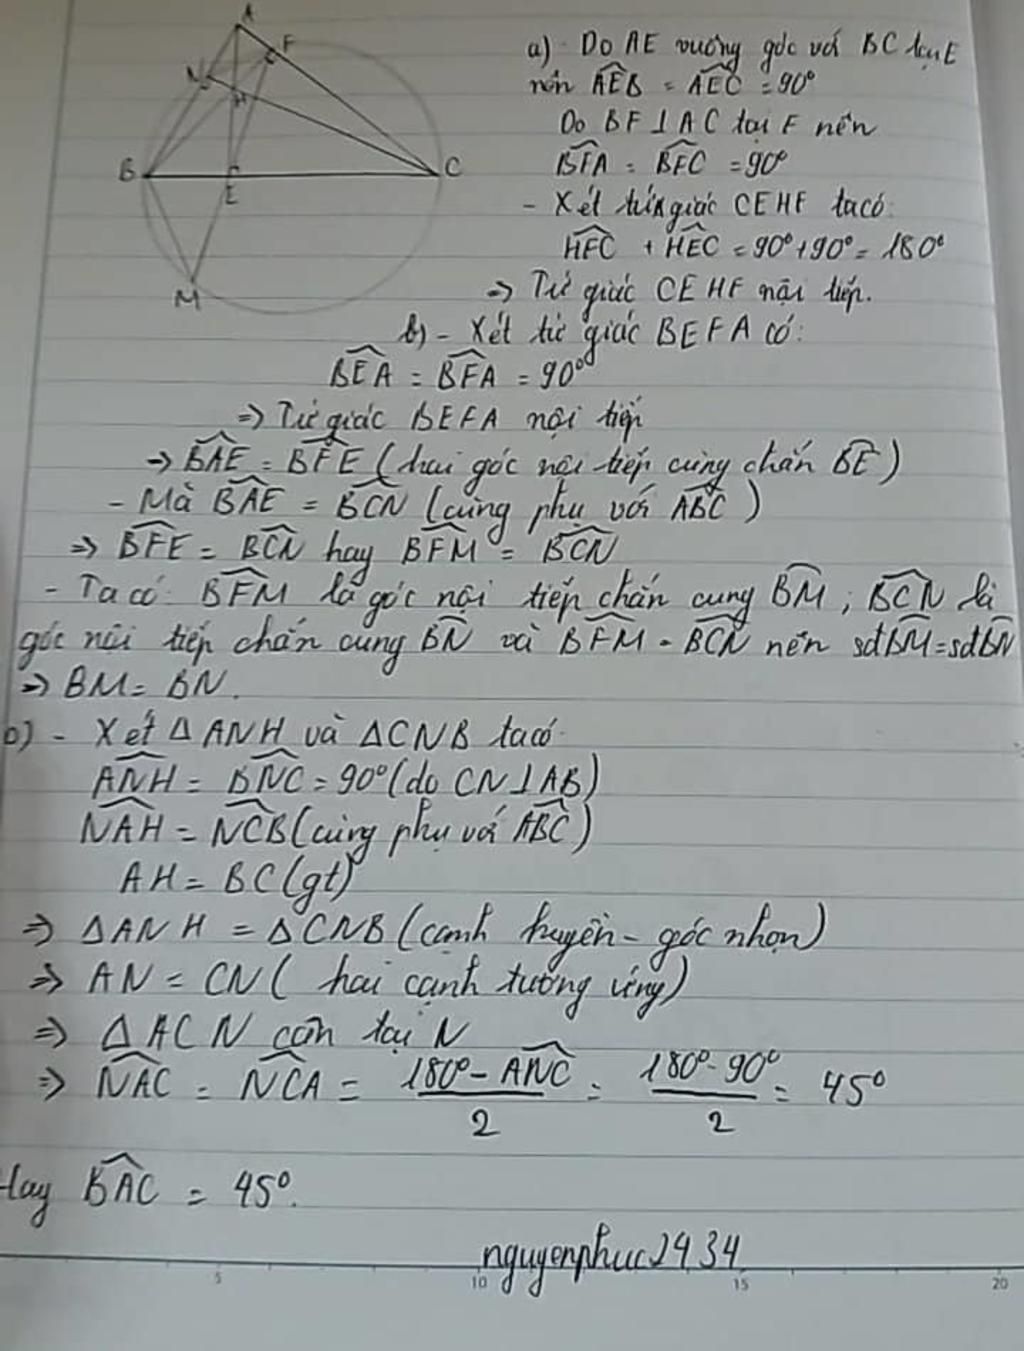 A
F
N
H
B
C
E
M
a) - Do AE vuông góc với BC tại E
nên AEB = AEC = 90°
Do BF ⊥ AC tại F nên
BFA = BFC = 90°
- Xét tứ giác CEHF ta có:
HFC + HEC = 90° + 90° = 180°
=> Tứ giác CEHF nội tiếp.
b) - Xét tứ giác BEFA có:
BEA = BFA = 90°
=> Tứ giác BEFA nội tiếp
=> BAE = BFE (hai góc nội tiếp cùng chắn BE)
- Mà BAE = BCN (cùng phụ với ABC)
=> BFE = BCN hay BFM = BCN
- Ta có: BFM là góc nội tiếp chắn cung BM; BCN là
góc nội tiếp chắn cung BN và BFM = BCN nên sđBM = sđBN
=> BM = BN.
- Xét ΔANH và ΔCNB ta có:
ANH = BNC = 90° (do CN ⊥ AB)
NAH = NCB (cùng phụ với ABC)
AH = BC (gt)
=> ΔANH = ΔCNB (cạnh huyền - góc nhọn)
=> AN = CN (hai cạnh tương ứng)
=> ΔACN cân tại N
=> NAC = NCA = (180° - ANC)/2 = (180° - 90°)/2 = 45°
Hay BAC = 45°.
nguyenphuc2434
5 10 15 20